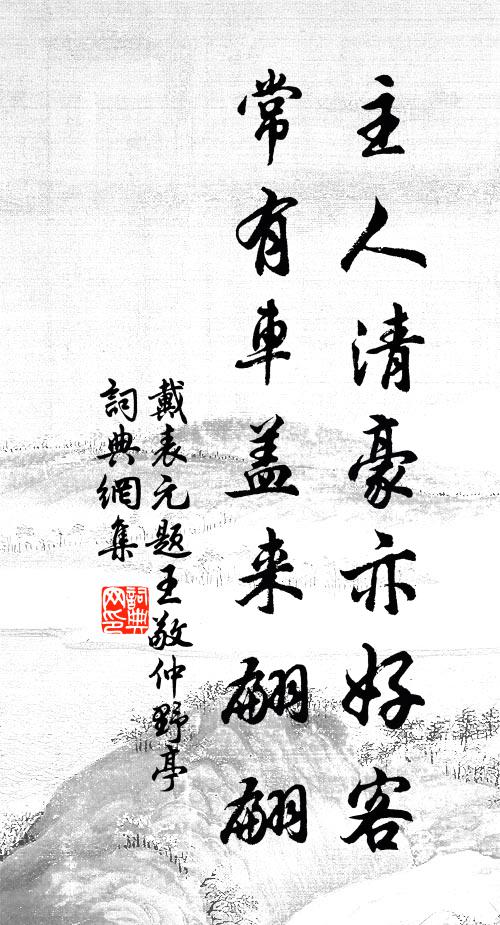 主人清豪亦好客
常有車蓋来翩翩
戴表元題王敬仲野亭
詞典網集
詞典网印